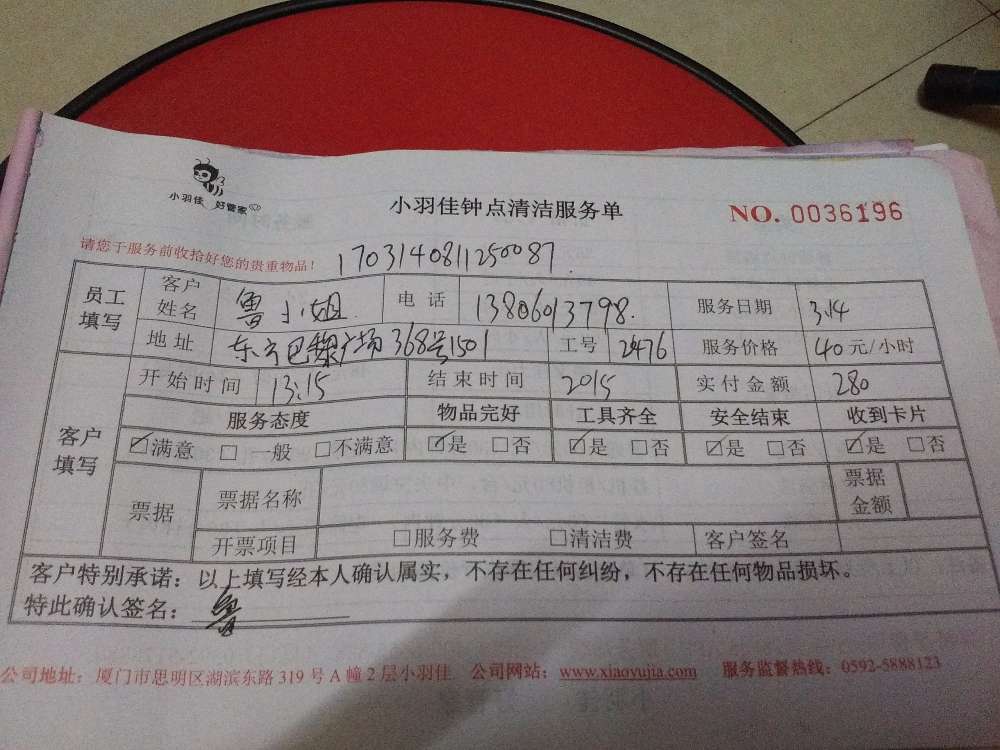 小羽佳 好管家
小羽佳钟点清洁服务单
NO. 0036196
请您于服务前收拾好您的贵重物品！
1703140811250087
员工填写 客户姓名 鲁小姐 电话 13806013798 服务日期 3.14
地址 东方巴黎广场368号1501 工号 2476 服务价格 40元/小时
客户填写 开始时间 13:15 结束时间 2015 实付金额 280
服务态度 物品完好 工具齐全 安全结束 收到卡片
☑满意 □一般 □不满意 ☑是 □否 ☑是 □否 ☑是 □否 ☑是 □否
票据 票据名称 票据金额
开票项目 □服务费 □清洁费 客户签名
客户特别承诺：以上填写经本人确认属实，不存在任何纠纷，不存在任何物品损坏。
特此确认签名：鲁
公司地址：厦门市思明区湖滨东路319号A幢2层小羽佳 公司网站：www.xiaoyujia.com 服务监督热线：0592-5888123